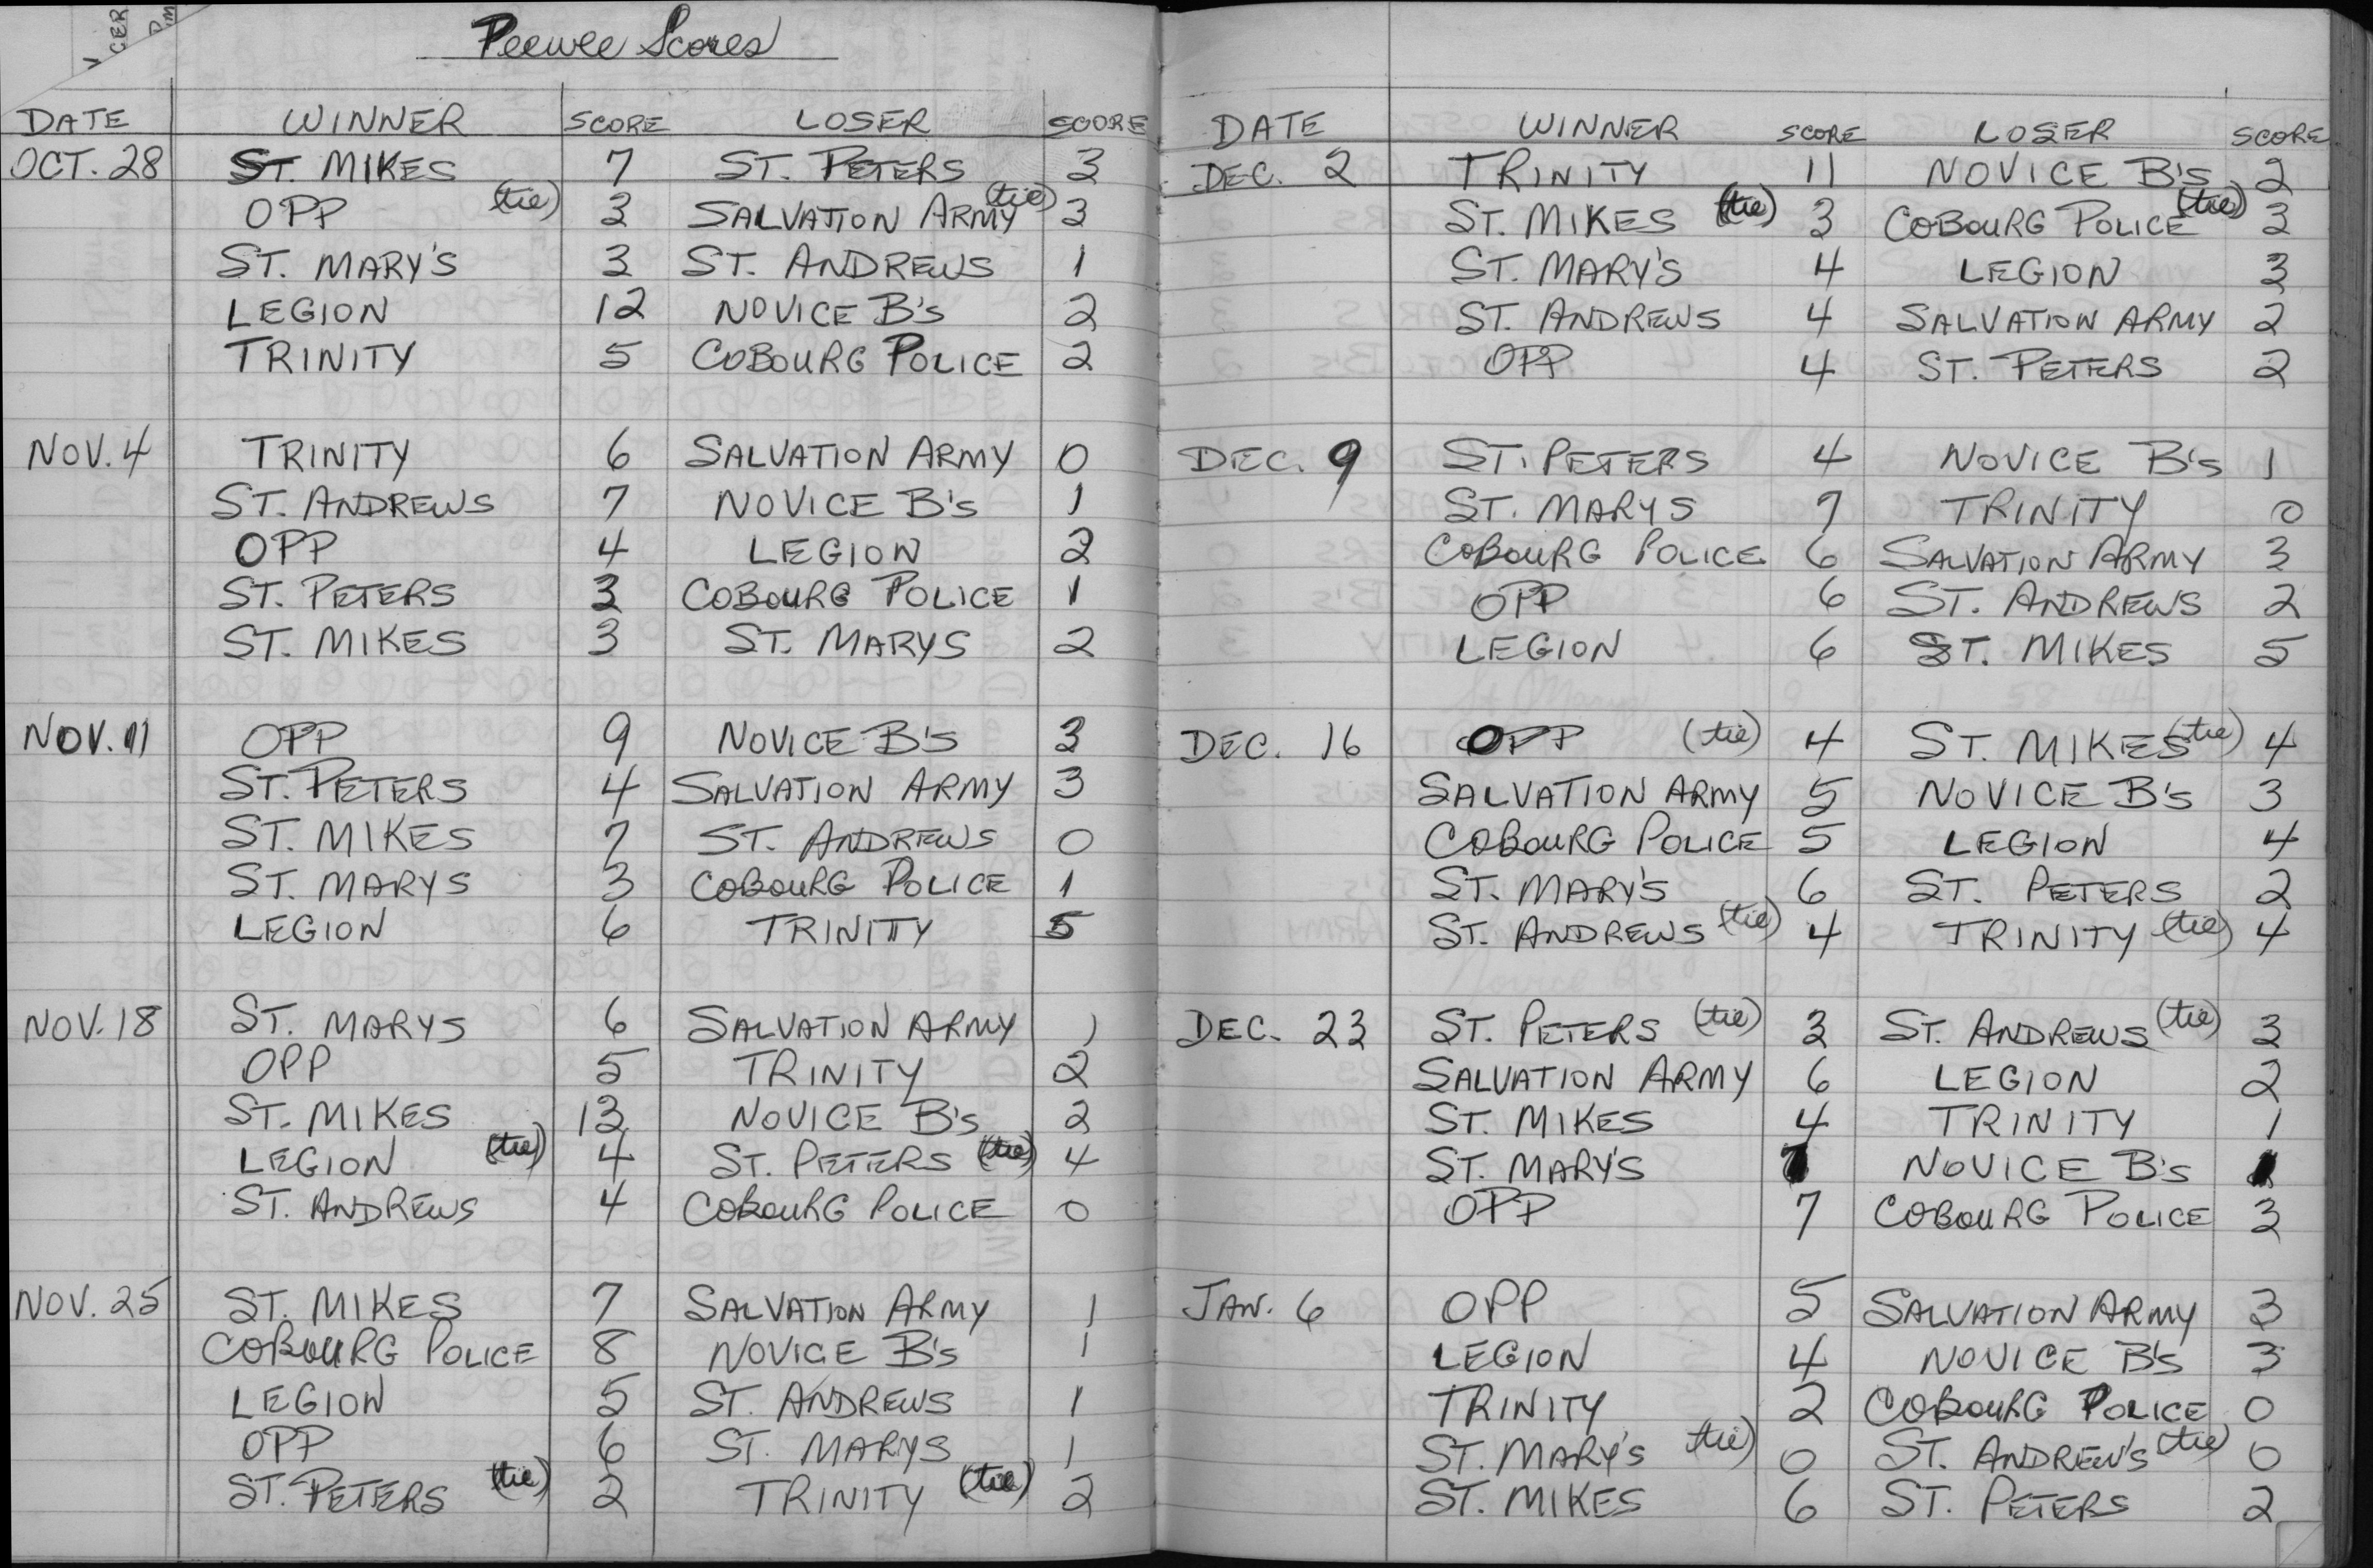 Peewee Scores
DATE WINNER SCORE LOSER SCORE
OCT. 28 ST. MIKES 7 ST. PETERS 3
OPP (tie) 3 SALVATION ARMY (tie) 3
ST. MARY'S 3 ST. ANDREWS 1
LEGION 12 NOVICE B's 2
TRINITY 5 COBOURG POLICE 2
NOV. 4 TRINITY 6 SALVATION ARMY 0
ST. ANDREWS 7 NOVICE B's 1
OPP 4 LEGION 2
ST. PETERS 3 COBOURG POLICE 1
ST. MIKES 3 ST. MARYS 2
NOV. 11 OPP 9 NOVICE B's 3
ST. PETERS 4 SALVATION ARMY 3
ST. MIKES 7 ST. ANDREWS 0
ST. MARYS 3 COBOURG POLICE 1
LEGION 6 TRINITY 5
NOV. 18 ST. MARYS 6 SALVATION ARMY 1
OPP 5 TRINITY 2
ST. MIKES 13 NOVICE B's 2
LEGION (tie) 4 ST. PETERS (tie) 4
ST. ANDREWS 4 COBOURG POLICE 0
NOV. 25 ST. MIKES 7 SALVATION ARMY 1
COBOURG POLICE 8 NOVICE B's 1
LEGION 5 ST. ANDREWS 1
OPP 6 ST. MARYS 1
ST. PETERS (tie) 2 TRINITY (tie) 2
DATE WINNER SCORE LOSER SCORE
DEC. 2 TRINITY 11 NOVICE B's 2
ST. MIKES (tie) 3 COBOURG POLICE (tie) 3
ST. MARY'S 4 LEGION 3
ST. ANDREWS 4 SALVATION ARMY 2
OPP 4 ST. PETERS 2
DEC. 9 ST. PETERS 4 NOVICE B's 1
ST. MARYS 7 TRINITY 0
COBOURG POLICE 6 SALVATION ARMY 3
OPP 6 ST. ANDREWS 2
LEGION 6 ST. MIKES 5
DEC. 16 OPP (tie) 4 ST. MIKES (tie) 4
SALVATION ARMY 5 NOVICE B's 3
COBOURG POLICE 5 LEGION 4
ST. MARY'S 6 ST. PETERS 2
ST. ANDREWS (tie) 4 TRINITY (tie) 4
DEC. 23 ST. PETERS (tie) 3 ST. ANDREWS (tie) 3
SALVATION ARMY 6 LEGION 2
ST. MIKES 4 TRINITY 1
ST. MARY'S NOVICE B's
OPP 7 COBOURG POLICE 3
JAN. 6 OPP 5 SALVATION ARMY 3
LEGION 4 NOVICE B's 3
TRINITY 2 COBOURG POLICE 0
ST. MARY'S (tie) 0 ST. ANDREW'S (tie) 0
ST. MIKES 6 ST. PETERS 2